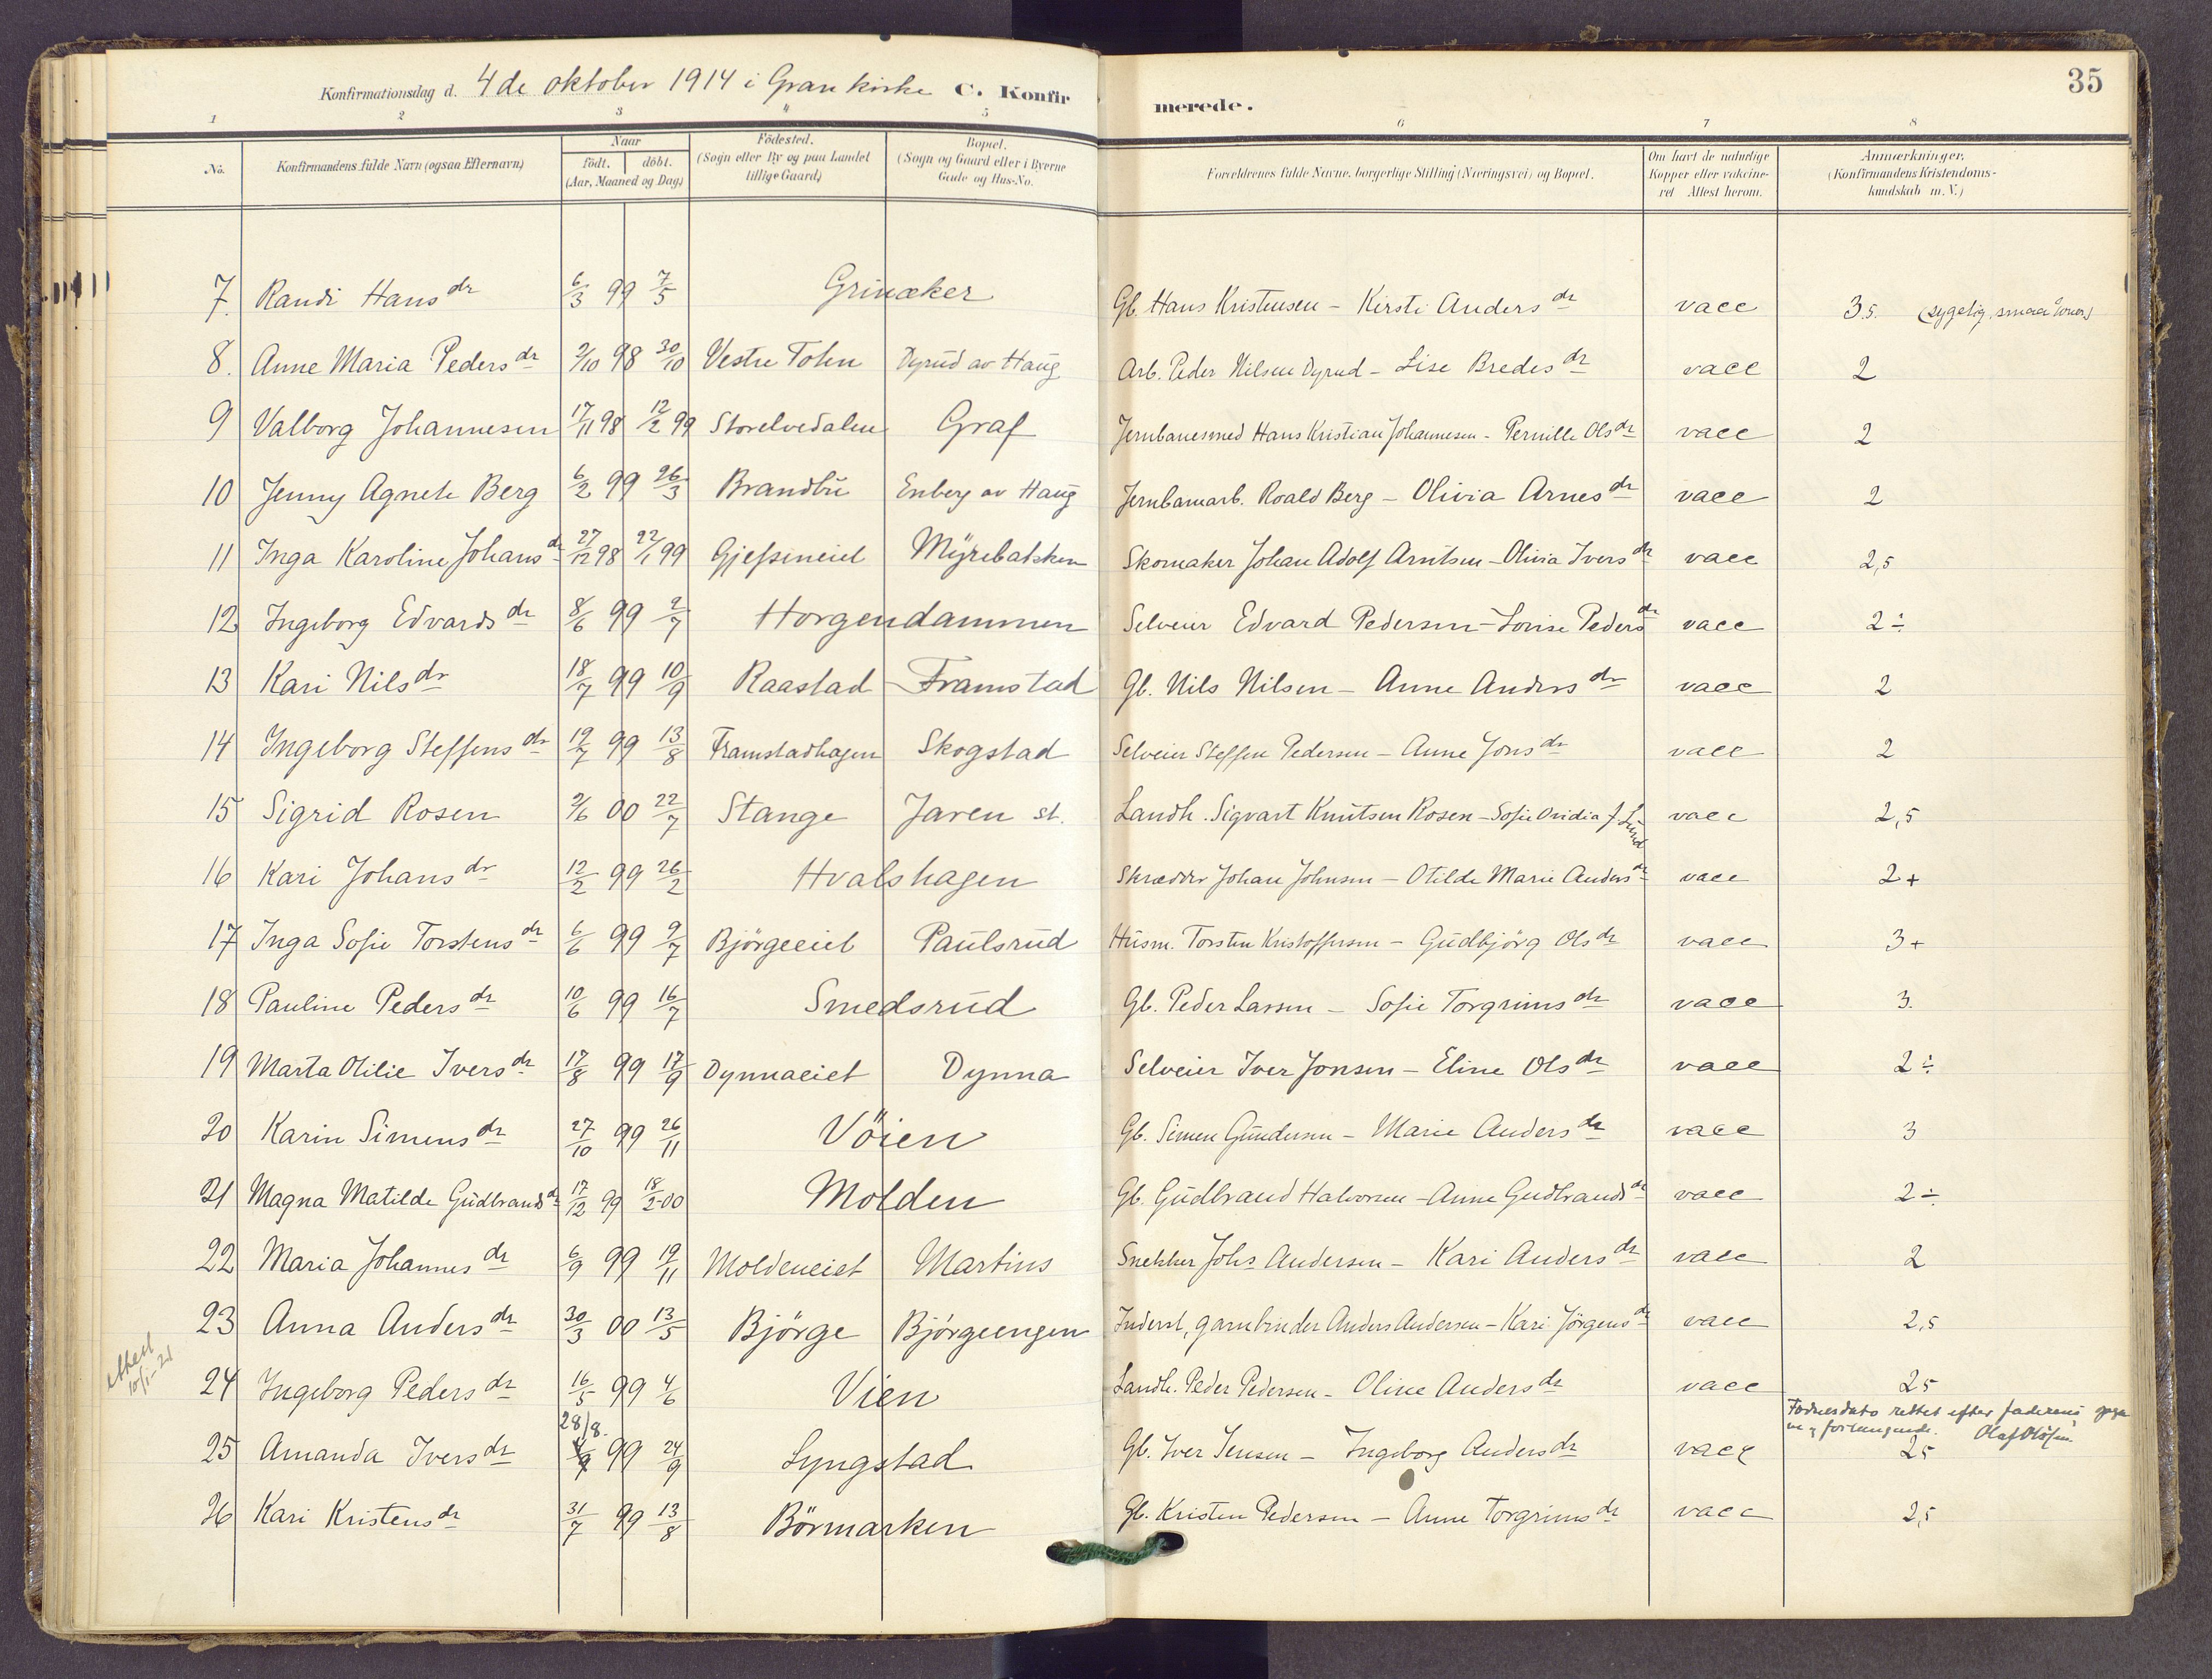 35
Konfirmationsdag d. 4de oktober 1914 i Gran kirke C. Konfirmerede.
1 2 3 4 5 6 7 8
No. Konfirmandens fulde Navn (ogsaa Efternavn) Naar födt. döbt. (Aar, Maaned og Dag) Födested. (Sogn eller By og paa Landet tillige Gaard) Bopæl. (Sogn og Gaard eller i Byerne Gade og Hus-No. Forældrenes fulde Navne, borgerlige Stilling (Næringsvei) og Bopæl. Om havt de naturlige Kopper eller vakcineret Attest herom. Anmærkninger. (Konfirmandens Kristendomskundskab m. V.)
7. Randi Hansdr 6/3 99 7/5 Grinaker Gb. Hans Kristensen - Kirsti Andersdr vacc 3.5. (sygelig, smaa evner)
8. Anne Maria Pedersdr 9/10 98 30/10 Vestre Toten Dyrud av Haug Arb. Peder Nilsen Dyrud - Lise Bredesdr vacc 2
9 Valborg Johannesen 17/11 98 12/2 99 Storelvedalen Graf Jernbanesmed Hans Kristian Johannesen - Pernille Olsdr vacc 2
10 Jenny Agnete Berg 6/2 99 26/3 Brandbu Enberg av Haug Jernbanearb. Roald Berg - Olivia Arnesdr vacc 2
11 Inga Karoline Johansdr 27/12 98 22/1 99 Gjefsineiet Myrebakken Skomaker Johan Adolf Arntsen - Olivia Iversdr vacc 2,5
12 Ingeborg Edvardsdr 8/6 99 2/7 Horgendammen Selveier Edvard Pedersen - Lovise Pedersdr vacc 2÷
13 Kari Nilsdr 18/7 99 10/9 Raastad Framstad Gb. Nils Nilsen - Anne Andersdr vacc 2
14 Ingeborg Steffensdr 19/7 99 13/8 Framstadhagen Skogstad Selveier Steffen Pedersen - Anne Jonsdr vacc 2
15 Sigrid Rosen 2/6 00 22/7 Stange Jaren st. Landh. Sigvart Knutsen Rosen - Sofie Ovidia f. Lund vacc 2,5
16 Kari Johansdr 12/2 99 26/2 Hvalshagen Skrædder Johan Johnsen - Otilde Marie Andersdr vacc 2+
17 Inga Sofie Torstensdr 6/6 99 9/7 Björgeeiet Paulsrud Husm. Torsten Kristoffersen - Gudbjörg Olsdr vacc 3+
18 Pauline Pedersdr 10/6 99 16/7 Smedsrud Gb. Peder Larsen - Sofie Torgrimsdr vacc 3.
19 Marta Otilie Iversdr 17/8 99 17/9 Dynnaeiet Dynna Selveier Iver Jonsen - Eline Olsdr vacc 2÷
20 Karin Simensdr 27/10 99 26/11 Vöien Gb. Simen Gundersen - Marie Andersdr vacc 3
21 Magna Matilde Gudbrandsdr 17/12 99 18/2-00 Molden Gb. Gudbrand Halvorsen - Anne Gudbrandsdr vacc 2÷
22 Maria Johannesdr 6/9 99 19/11 Moldeneiet Martins Snekker Johs Andersen - Kari Andersdr vacc 2
23 Anna Andersdr 30/3 00 13/5 Björge Björgeengen Inderst, garnbinder Anders Andersen - Kari Jörgensdr vacc 2,5
attest 10/1-21
24 Ingeborg Pedersdr 16/5 99 4/6 Vien Landh. Peder Pedersen - Oline Andersdr vacc 25
Födselsdato rettet efter faderens
forlangende. Olaf Olafsen
25 Amanda Iversdr 28/8. 99 24/9 Lyngstad Gb. Iver Jensen - Ingeborg Andersdr vacc 25
26 Kari Kristensdr 31/7 99 13/8 Börmarken Gb. Kristen Pedersen - Anne Torgrimsdr vacc 2,5